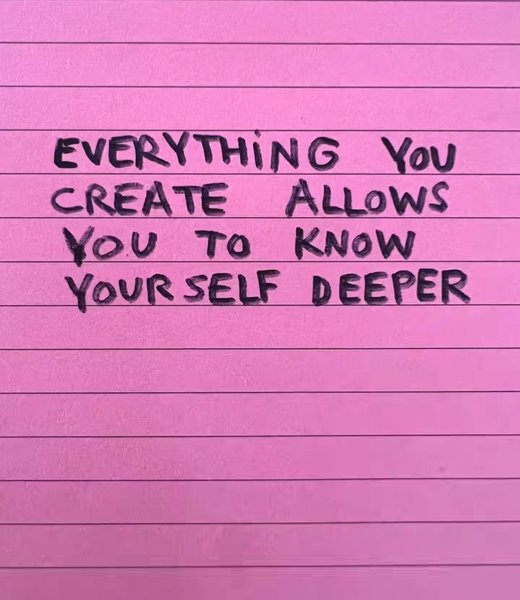 EVERYTHiNG YOU
CREATE ALLOWS
YOU TO KNOW
YOURSELF DEEPER